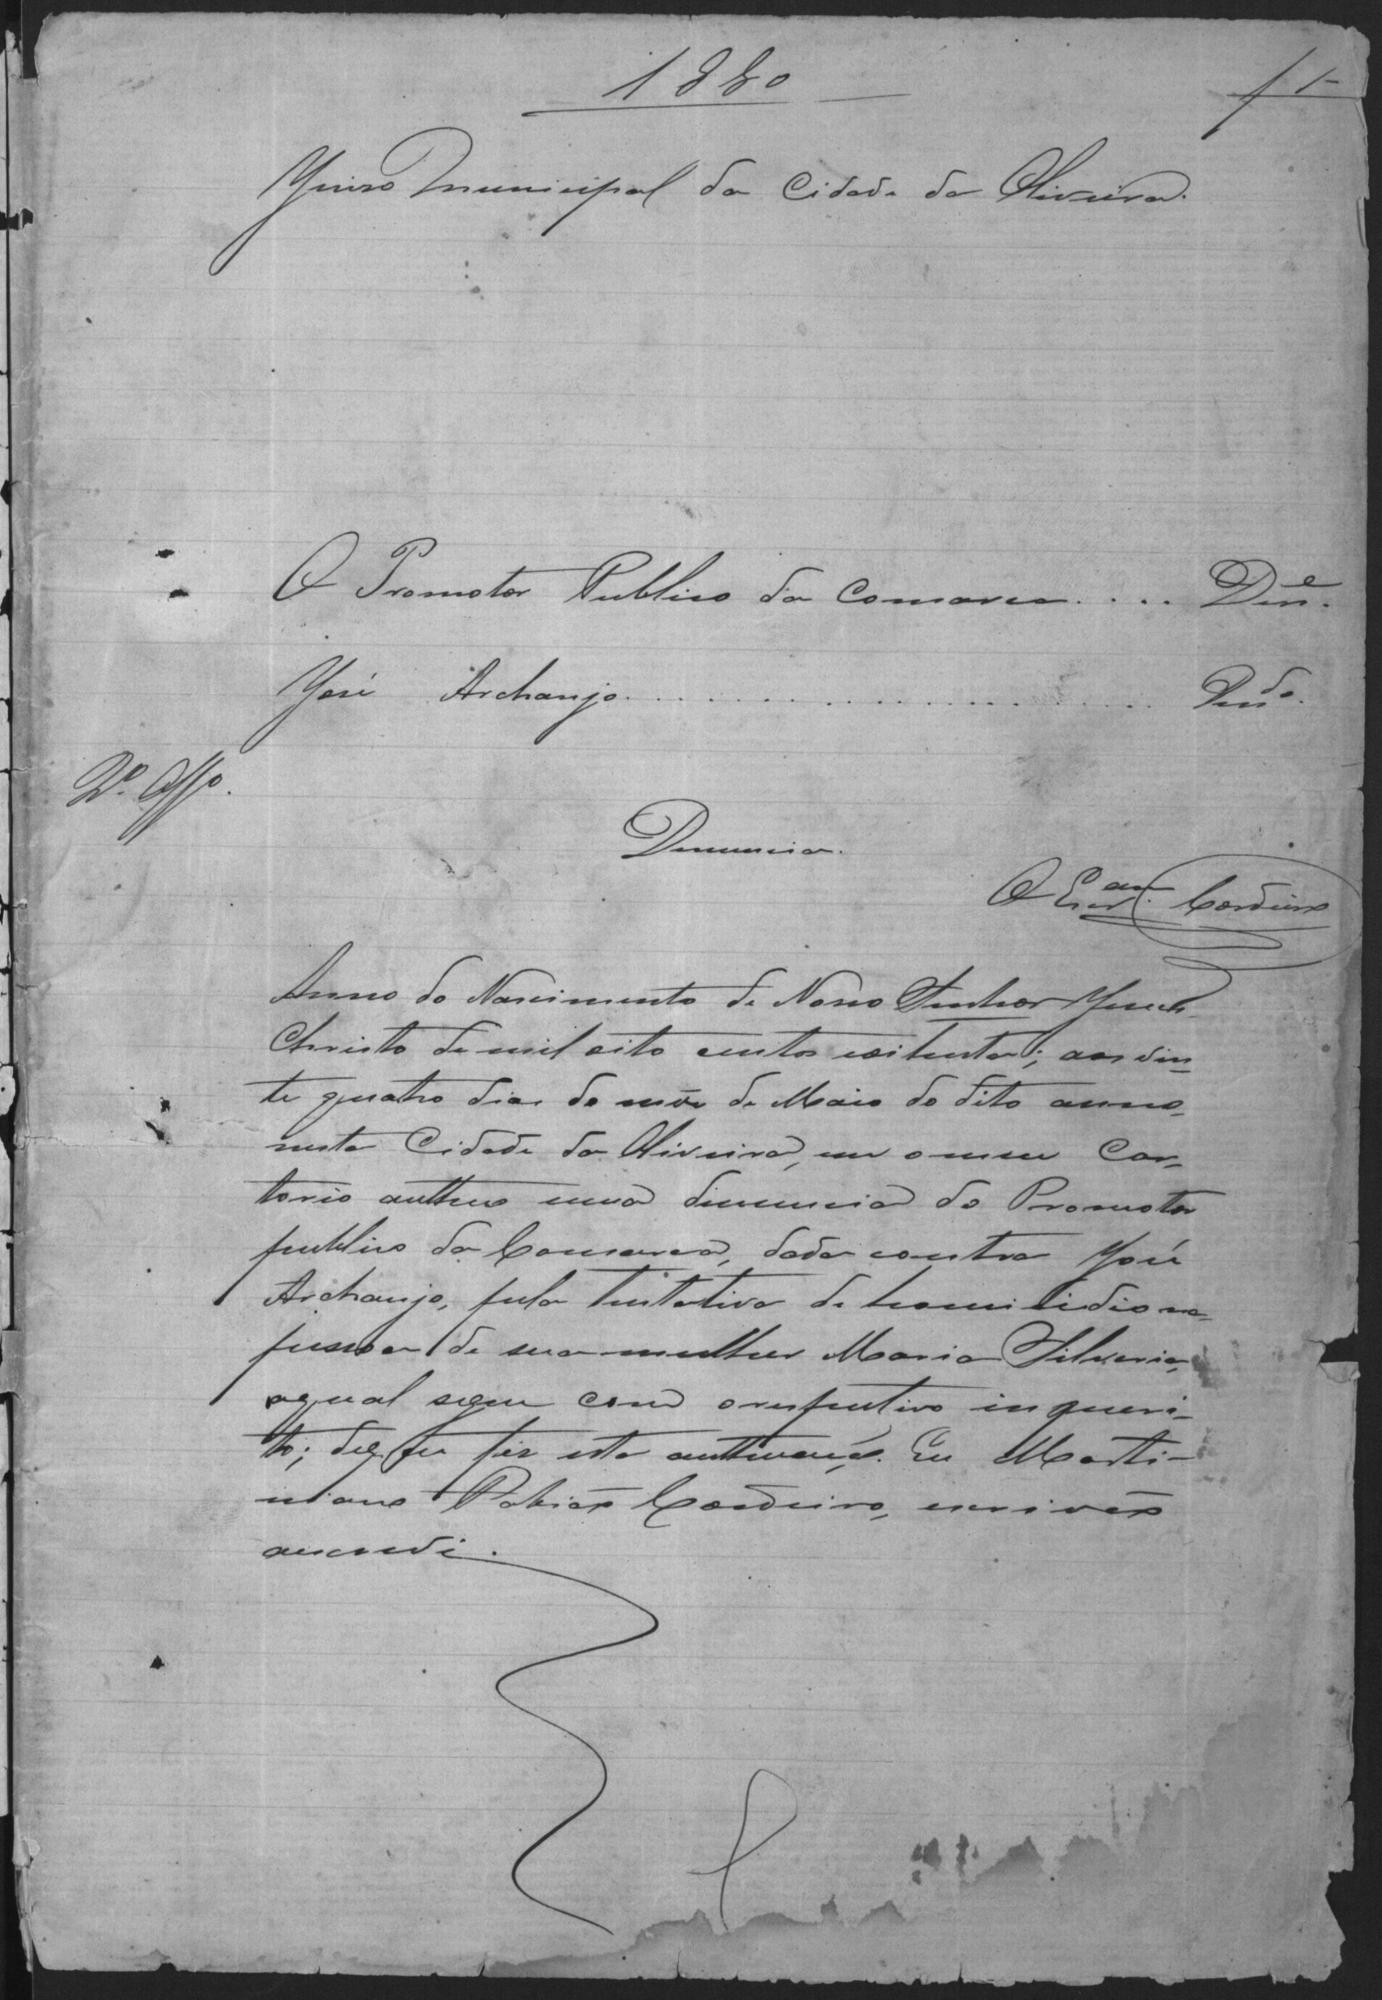 1880
f 1
Juiso Municipal da Cidade da Oliveira.
O Promotor Publico da Comarca.... Den.e
José Archanjo...................... Den.do
2º Offº.
Denuncia.
O Escr.am Cordeiro
Anno do Nascimento de Nosso Senhor Jesus
Christo de mil oito centos eoitenta; aos vin
te quatro dias do mês de Maio do dito anno,
nesta Cidade da Oliveira, em o meu Car
torio autuo uma denuncia do Promotor
publico da Comarca, dada contra José
Archanjo, pela tentativa de homicidio na
pessoa de sua mulher Maria Silveria,
aqual segue com o respectivo inqueri-
to; do que fiz esta autuação. Eu Marti-
niano Cordeiro, escrivão
escrevi.